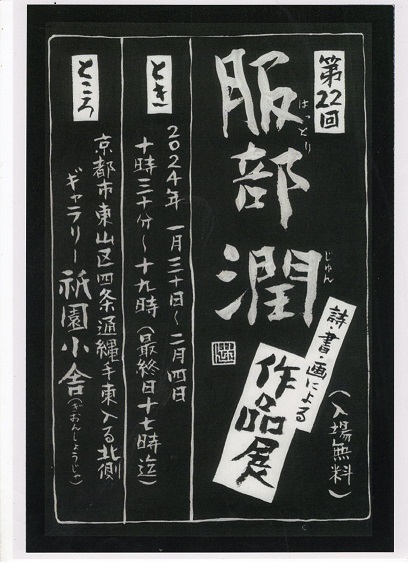 第22回
服部潤
はっとり
じゅん
詩・書・画による
作品展
(入場無料)
とき
2024年 一月三十日〜二月四日
十時三十分〜十九時(最終日十七時迄)
ところ
京都市東山区四条通縄手東入る北側
ギャラリー祇園小舎(ぎおんしょうじゃ)